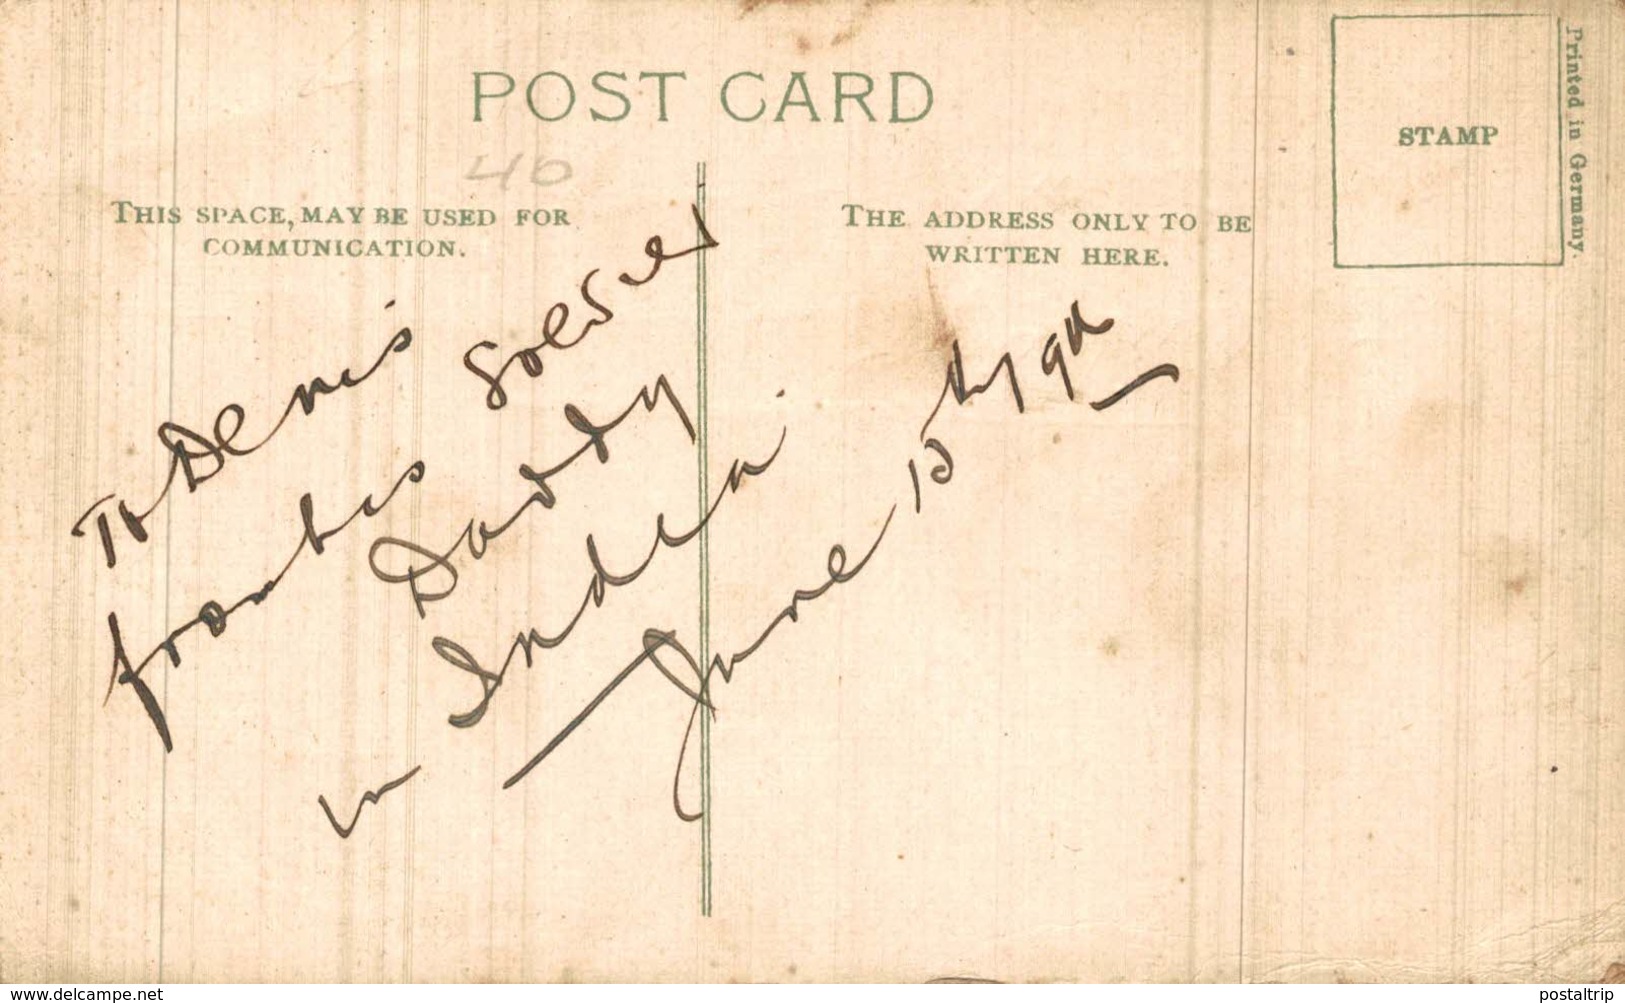 POST CARD
40
THIS SPACE, MAY BE USED FOR
COMMUNICATION.
THE ADDRESS ONLY TO BE
WRITTEN HERE.
STAMP
Printed in Germany.
To Denis
from his Soldier
Daddy
in India.
June 15th/
www.delcampe.net
postaltrip